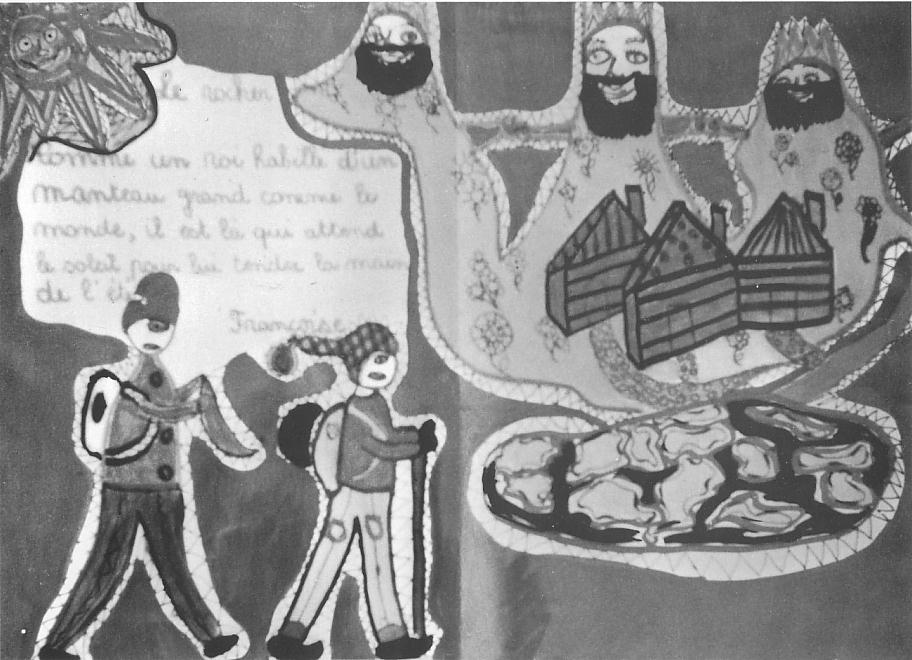 Le rocher
Comme un roi habillé d'un
manteau grand comme le
monde, il est là qui attend
le soleil pour lui tendre la main
de l'été
Françoise